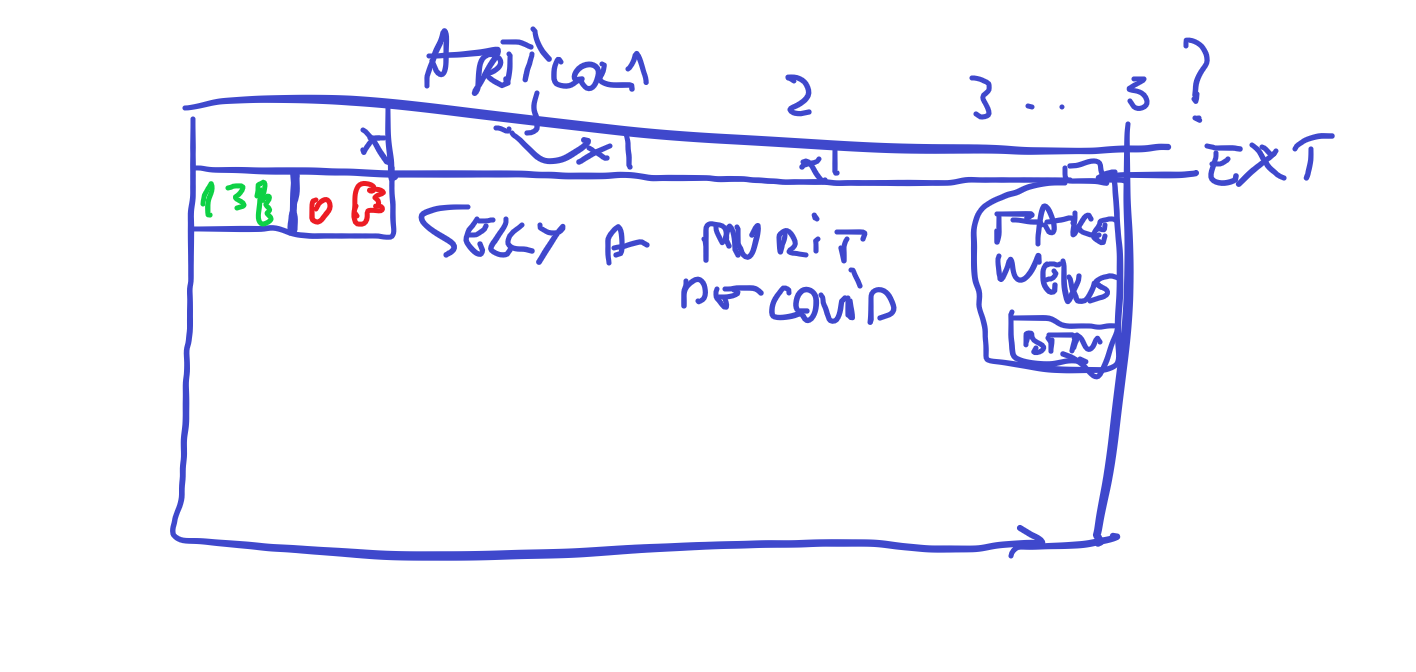 ARTICOL 1 2 3 ... 5 ?
x x x EXT
138 0
A MURIT
DE COVID
FAKE
NEWS
BTN